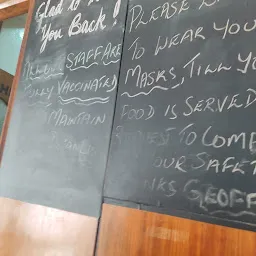 Glad to
You Back!
STAFF ARE
FULLY VACCINATED
MAINTAIN
PLEASE
TO WEAR YOU
MASKS, TILL YO
FOOD IS SERVED
TO COME
OUR SAFET
NKS GEOFF